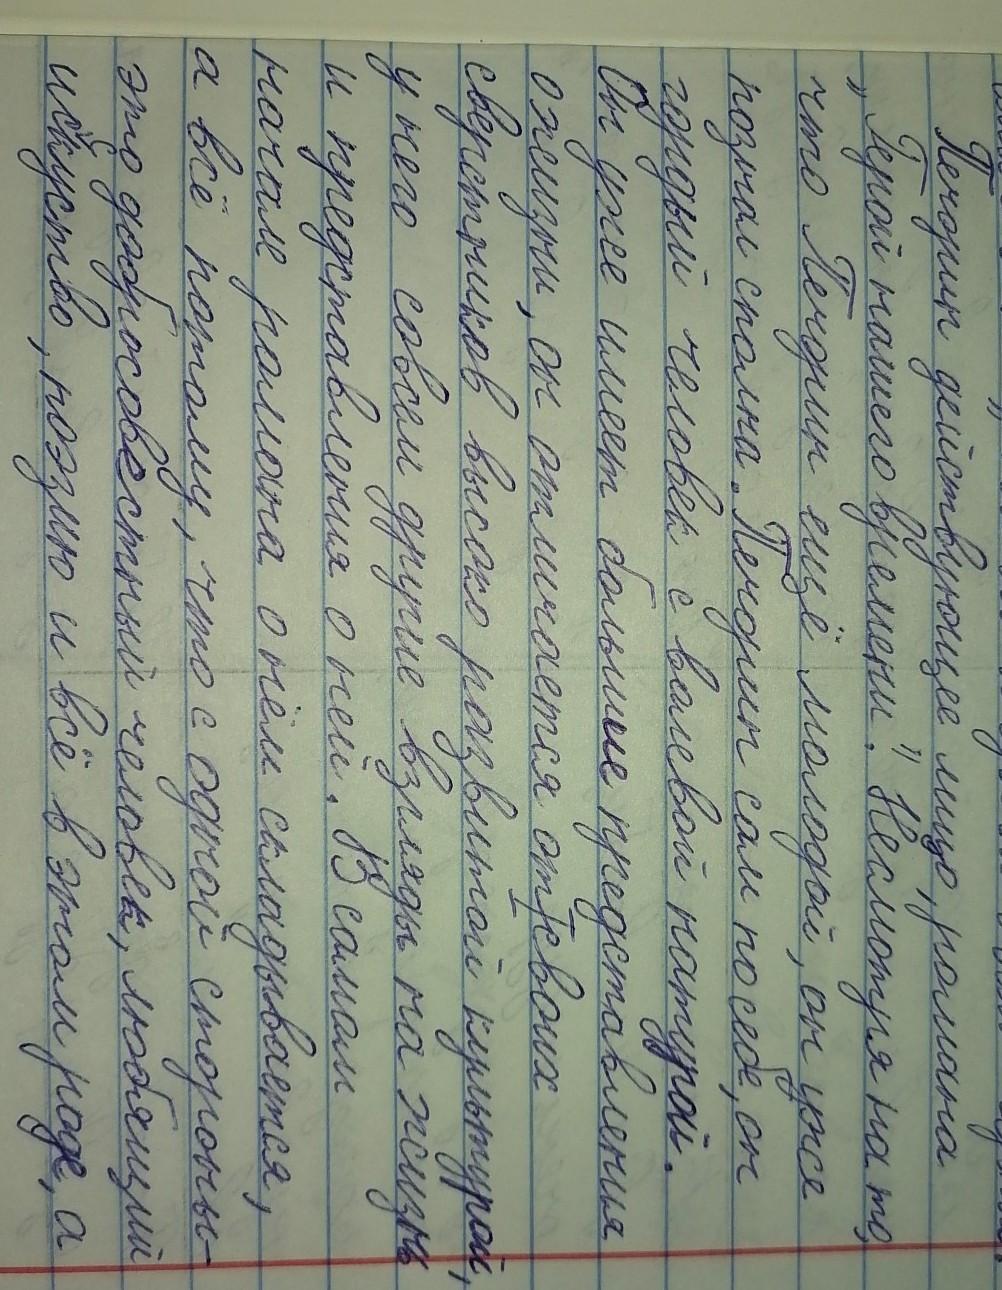 Печорин действующее лицо, романа
„Герой нашего времени." Несмотря на то,
что Печорин ещё молодой, он уже
познал сполна. Печорин сам по себе, он
гордый человек с волевой натурой.
Он уже имеет большие представления
о жизни, он отличается от своих
сверстников высоко развитой культурой,
у него совсем другие взгляды на жизнь
и представления о ней. В самом
начале романа о нём складывается,
а всё потому, что с одной стороны-
это добросовестный человек, любящий
искуство, поэзию и всё в этом роде, а